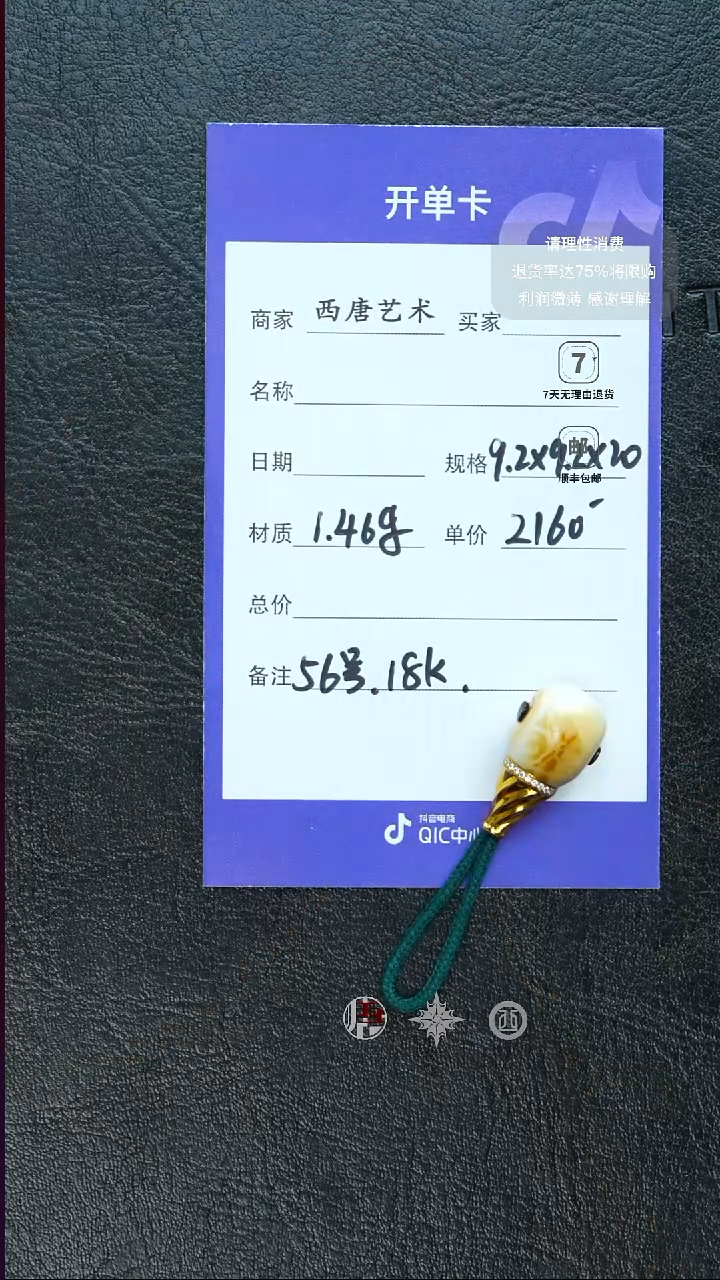 开单卡
请理性消费
退货率达75%将限购
利润微薄 感谢理解
商家 西唐艺术 买家
7
7天无理由退货
名称
邮
顺丰包邮
日期 规格 9.2x9.2x20
材质 1.46g 单价 2160-
总价
备注 56号.18k.
抖音电商
QIC中心
西